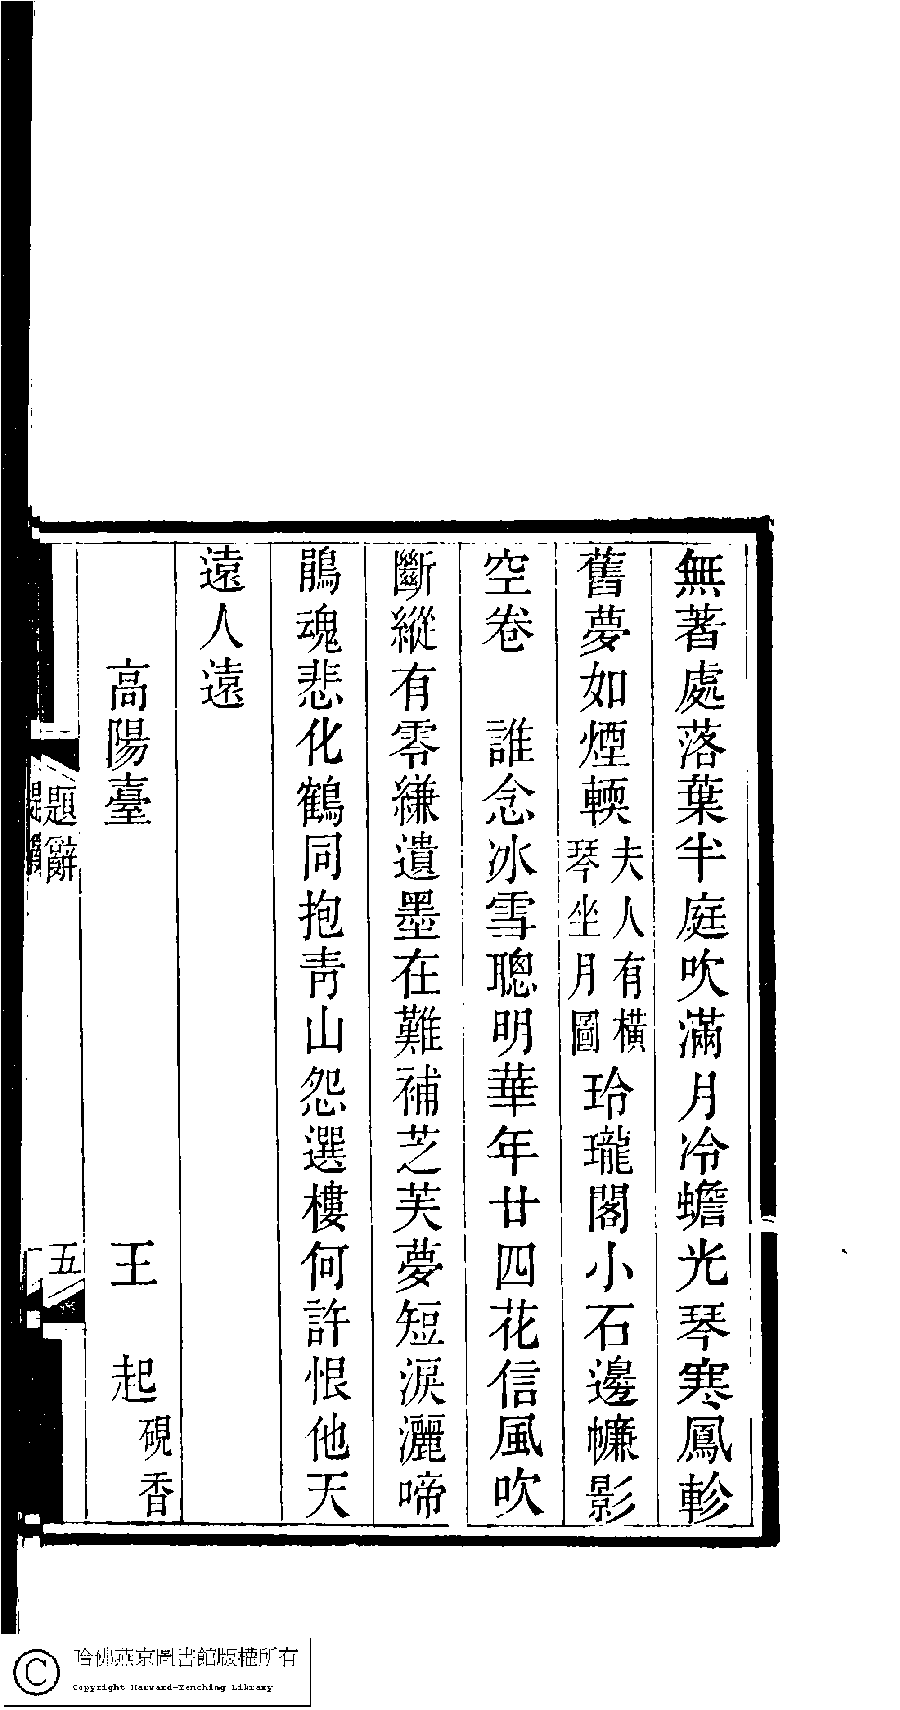 無著處落葉半庭吹滿月冷蟾光琴寒鳳軫
舊夢如煙輭夫人有橫琴坐月圖玲瓏閣小石邊㡘影
空卷　誰念冰雪聰明華年廿四花信風吹
斷縱有零縑遺墨在難補芝芙夢短淚灑啼
鵑魂悲化鶴同抱青山怨選樓何許恨他天
遠人遠
高陽臺　王　起硯香
題辭
五
哈佛燕京圖書館版權所有
Copyright Harvard-Yenching Library